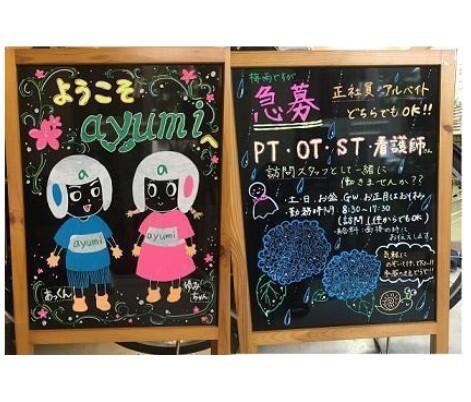 ようこそ
ayumiへ
a
a
ayumi
ayumi
あっくん
ゆみちゃん
梅雨ですが
急募
正社員・アルバイト
どちらでもOK!!
PT・OT・ST・看護師さん
訪問スタッフとして一緒に
働きませんか??
土・日、お盆、GW、お正月はお休み
勤務時間 8:30~17:30
(訪問1件からでもOK)
給料:面接の時に
お伝えします。
気軽に